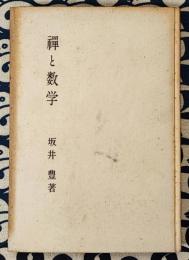 禪と数学
坂井豊著